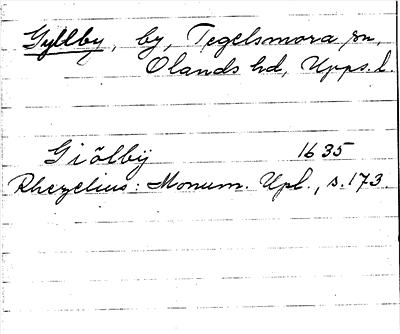 Gyllby, by, Tegelsmora sn,
Olands hd, Upps. l.
Giölbÿ 1635
Rhezelius: Monum. Upl., s. 173.